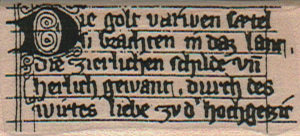 Die golt varwen sætel
si brachten in daz lant,
die zierlichen schilde vñ
herlich gewant, durch des
wirtes liebe zv d' hochgezit